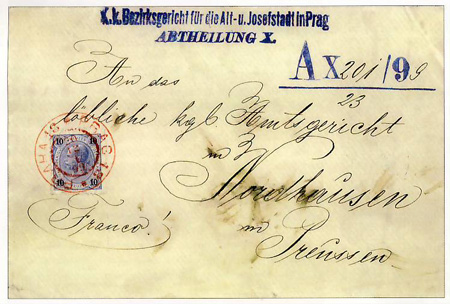 K.k. Bezirksgericht für die Alt- u. Josefstadt in Prag
ABTHEILUNG X.
A X 201/99
23
An das
löbliche kgl. Amtsgericht
in
Nordhausen
in
Preussen
Franco!
10 10
10 10
PRAG